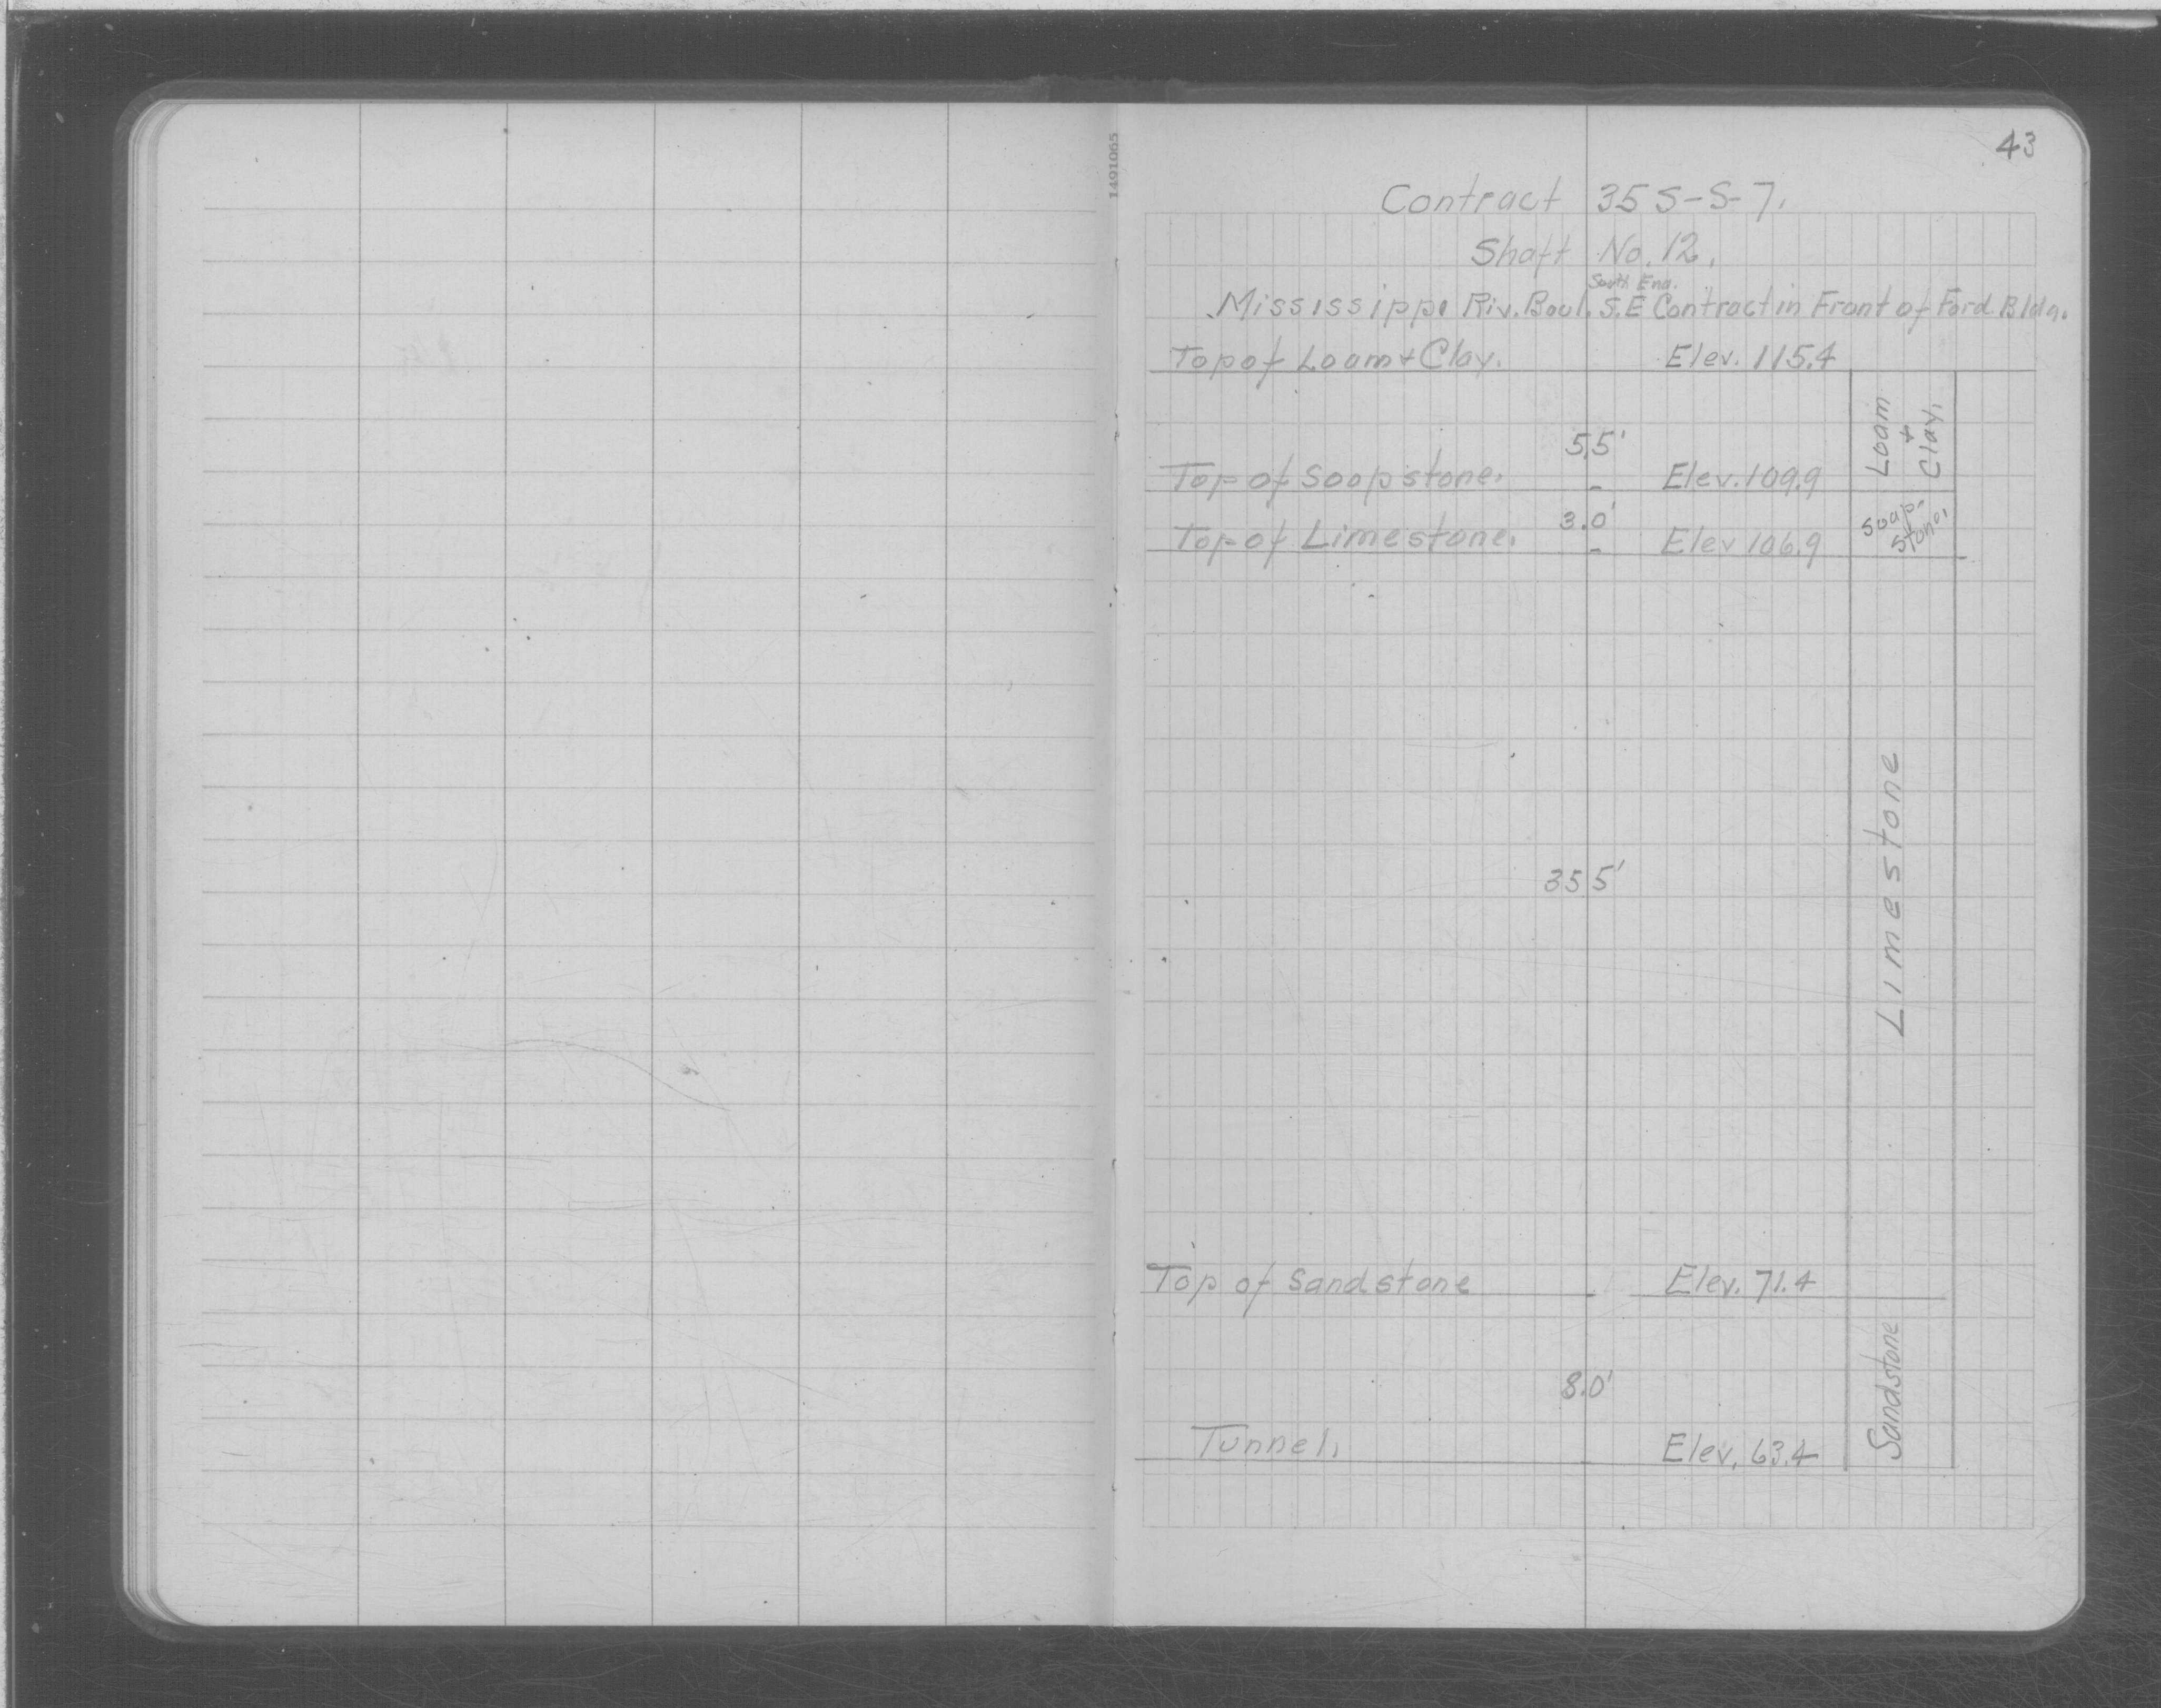 43
1491065
Contract 35 S-S-7.
Shaft No. 12.
South End.
Mississippi Riv. Boul. S.E Contract in Front of Ford Bldg.
Top of Loam + Clay. Elev. 115.4
Loam
+
Clay.
5.5'
Top of Soapstone. - Elev. 109.9
3.0'
Soap-
stone.
Top of Limestone. - Elev 106.9
35.5'
Limestone
Top of Sandstone - Elev. 71.4
8.0'
Sandstone
Tunnel. Elev. 63.4